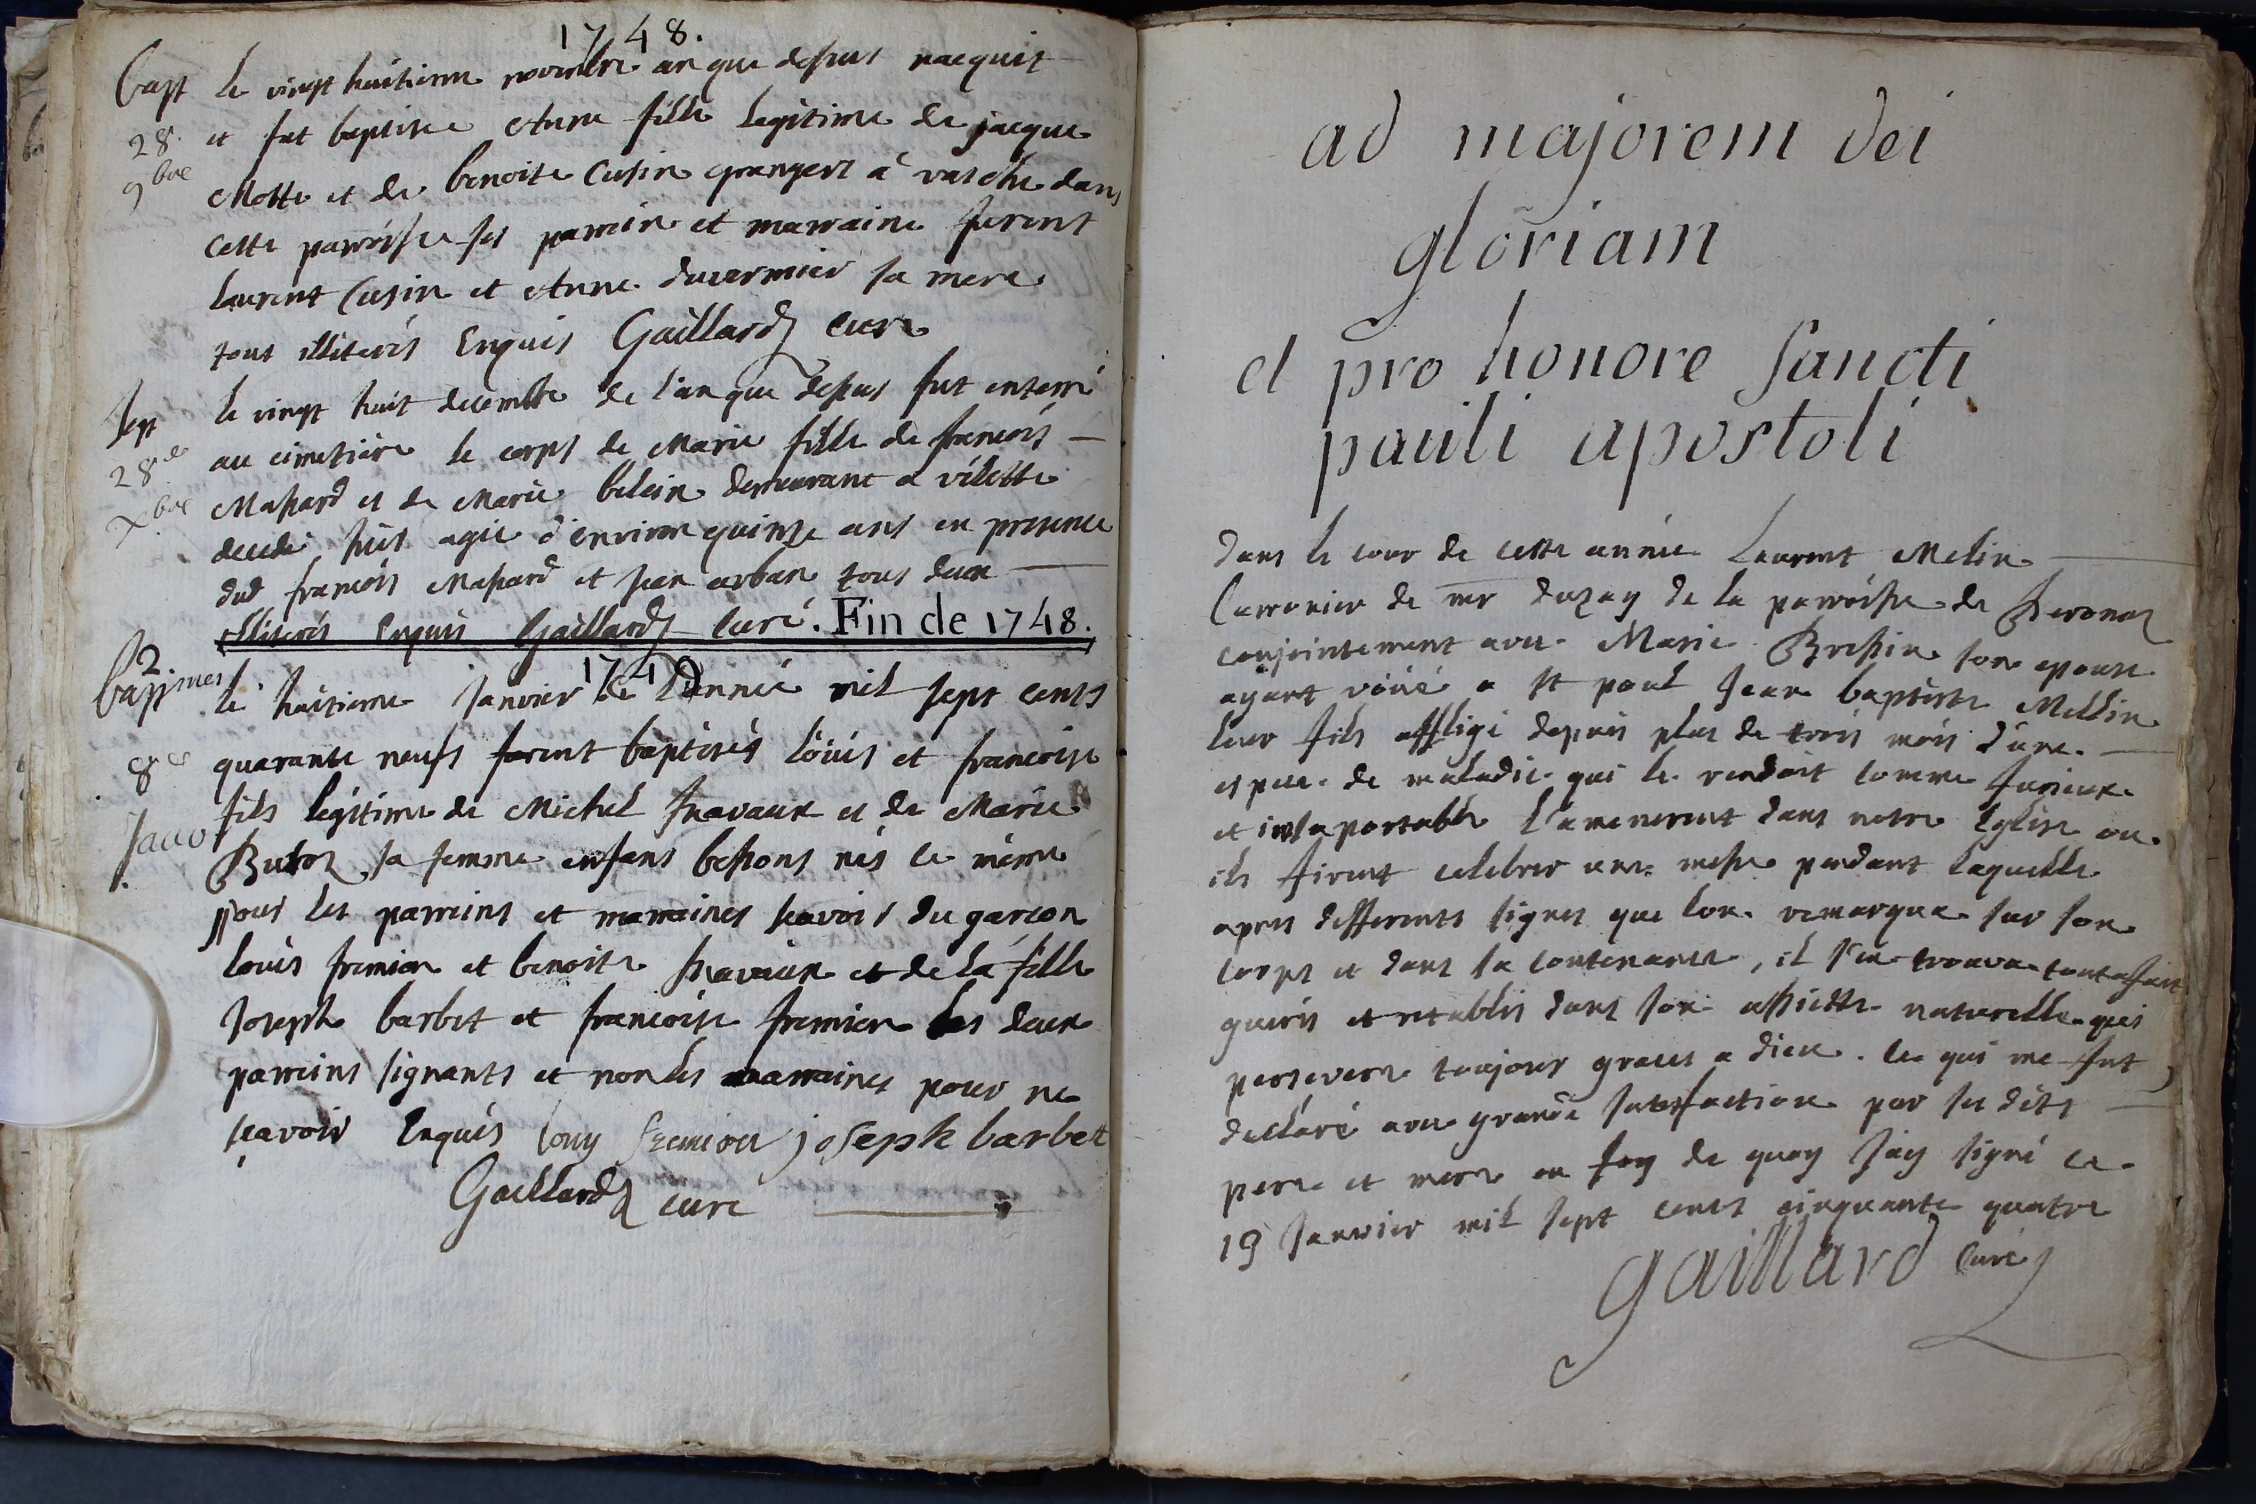 1748.
bapt le vingt huitieme novembre an que dessus nacquit
28. et fut baptisee Anne fille legitime de jacque
9bre Motte et de benoite Cusin grangers à vasche dans
cette parroisse ses parrein et marraine furent
laurent Cusin et Anne ducarmier sa mere
tous illiterés Enquis Gaillard cure
sep le vingt huit decembre de l'an que dessus fut enterré
28e au cimetière le corps de Marie fille de francois
xbre Massard et de Marie belein demeurant a vilette
decedé hier agée d'environ quinze ans en presence
dud francois Massard et jean arban tous deux
illiterés Enquis Gaillard curé. Fin de 1748.
1749
2 baptmes le huitieme janvier de l'année mil sept cents
8e quarante neufs furent baptisés loüis et francoise
janv fils legitime de Michel travaux et de Marie
Buton sa femme enfans bessons nés le même
jour les parreins et marraines scavoir du garcon
loüis fremion et benoite travaux et de la fille
joseph barbet et francoise fremion les deux
parreins signants et non les marraines pour ne
scavoir Enquis louy fremion joseph barbet
Gaillard curé
ad majorem dei
gloriam
et pro honore sancti
pauli apostoli
dans le cour de cette année Laurent Melin
Carronier de mr duzay de la parroisse de Peronas
conjointement avec Marie Bressin son epouse
ayant voüé a st paul Jean baptiste Mellin
leur fils affligé depuis plus de trois mois d'une
espece de maladie qui le rendoit comme furieux
et insuportable l'amenerent dans notre Eglise ou
ils firent celebrer une messe pendant laquelle
apres differents signes que l'on remarqua sur son
corps et dans sa contenance, il s'en trouva toutafait
gueris et retablis dans son assiette naturelle qui
persevere toujour graces a dieu. ce qui me fut
declaré avec grande satisfaction par ses dits
pere et mere en foy de quoy j'ay signé ce
19 Janvier mil sept cents cinquante quatre
gaillard Curé